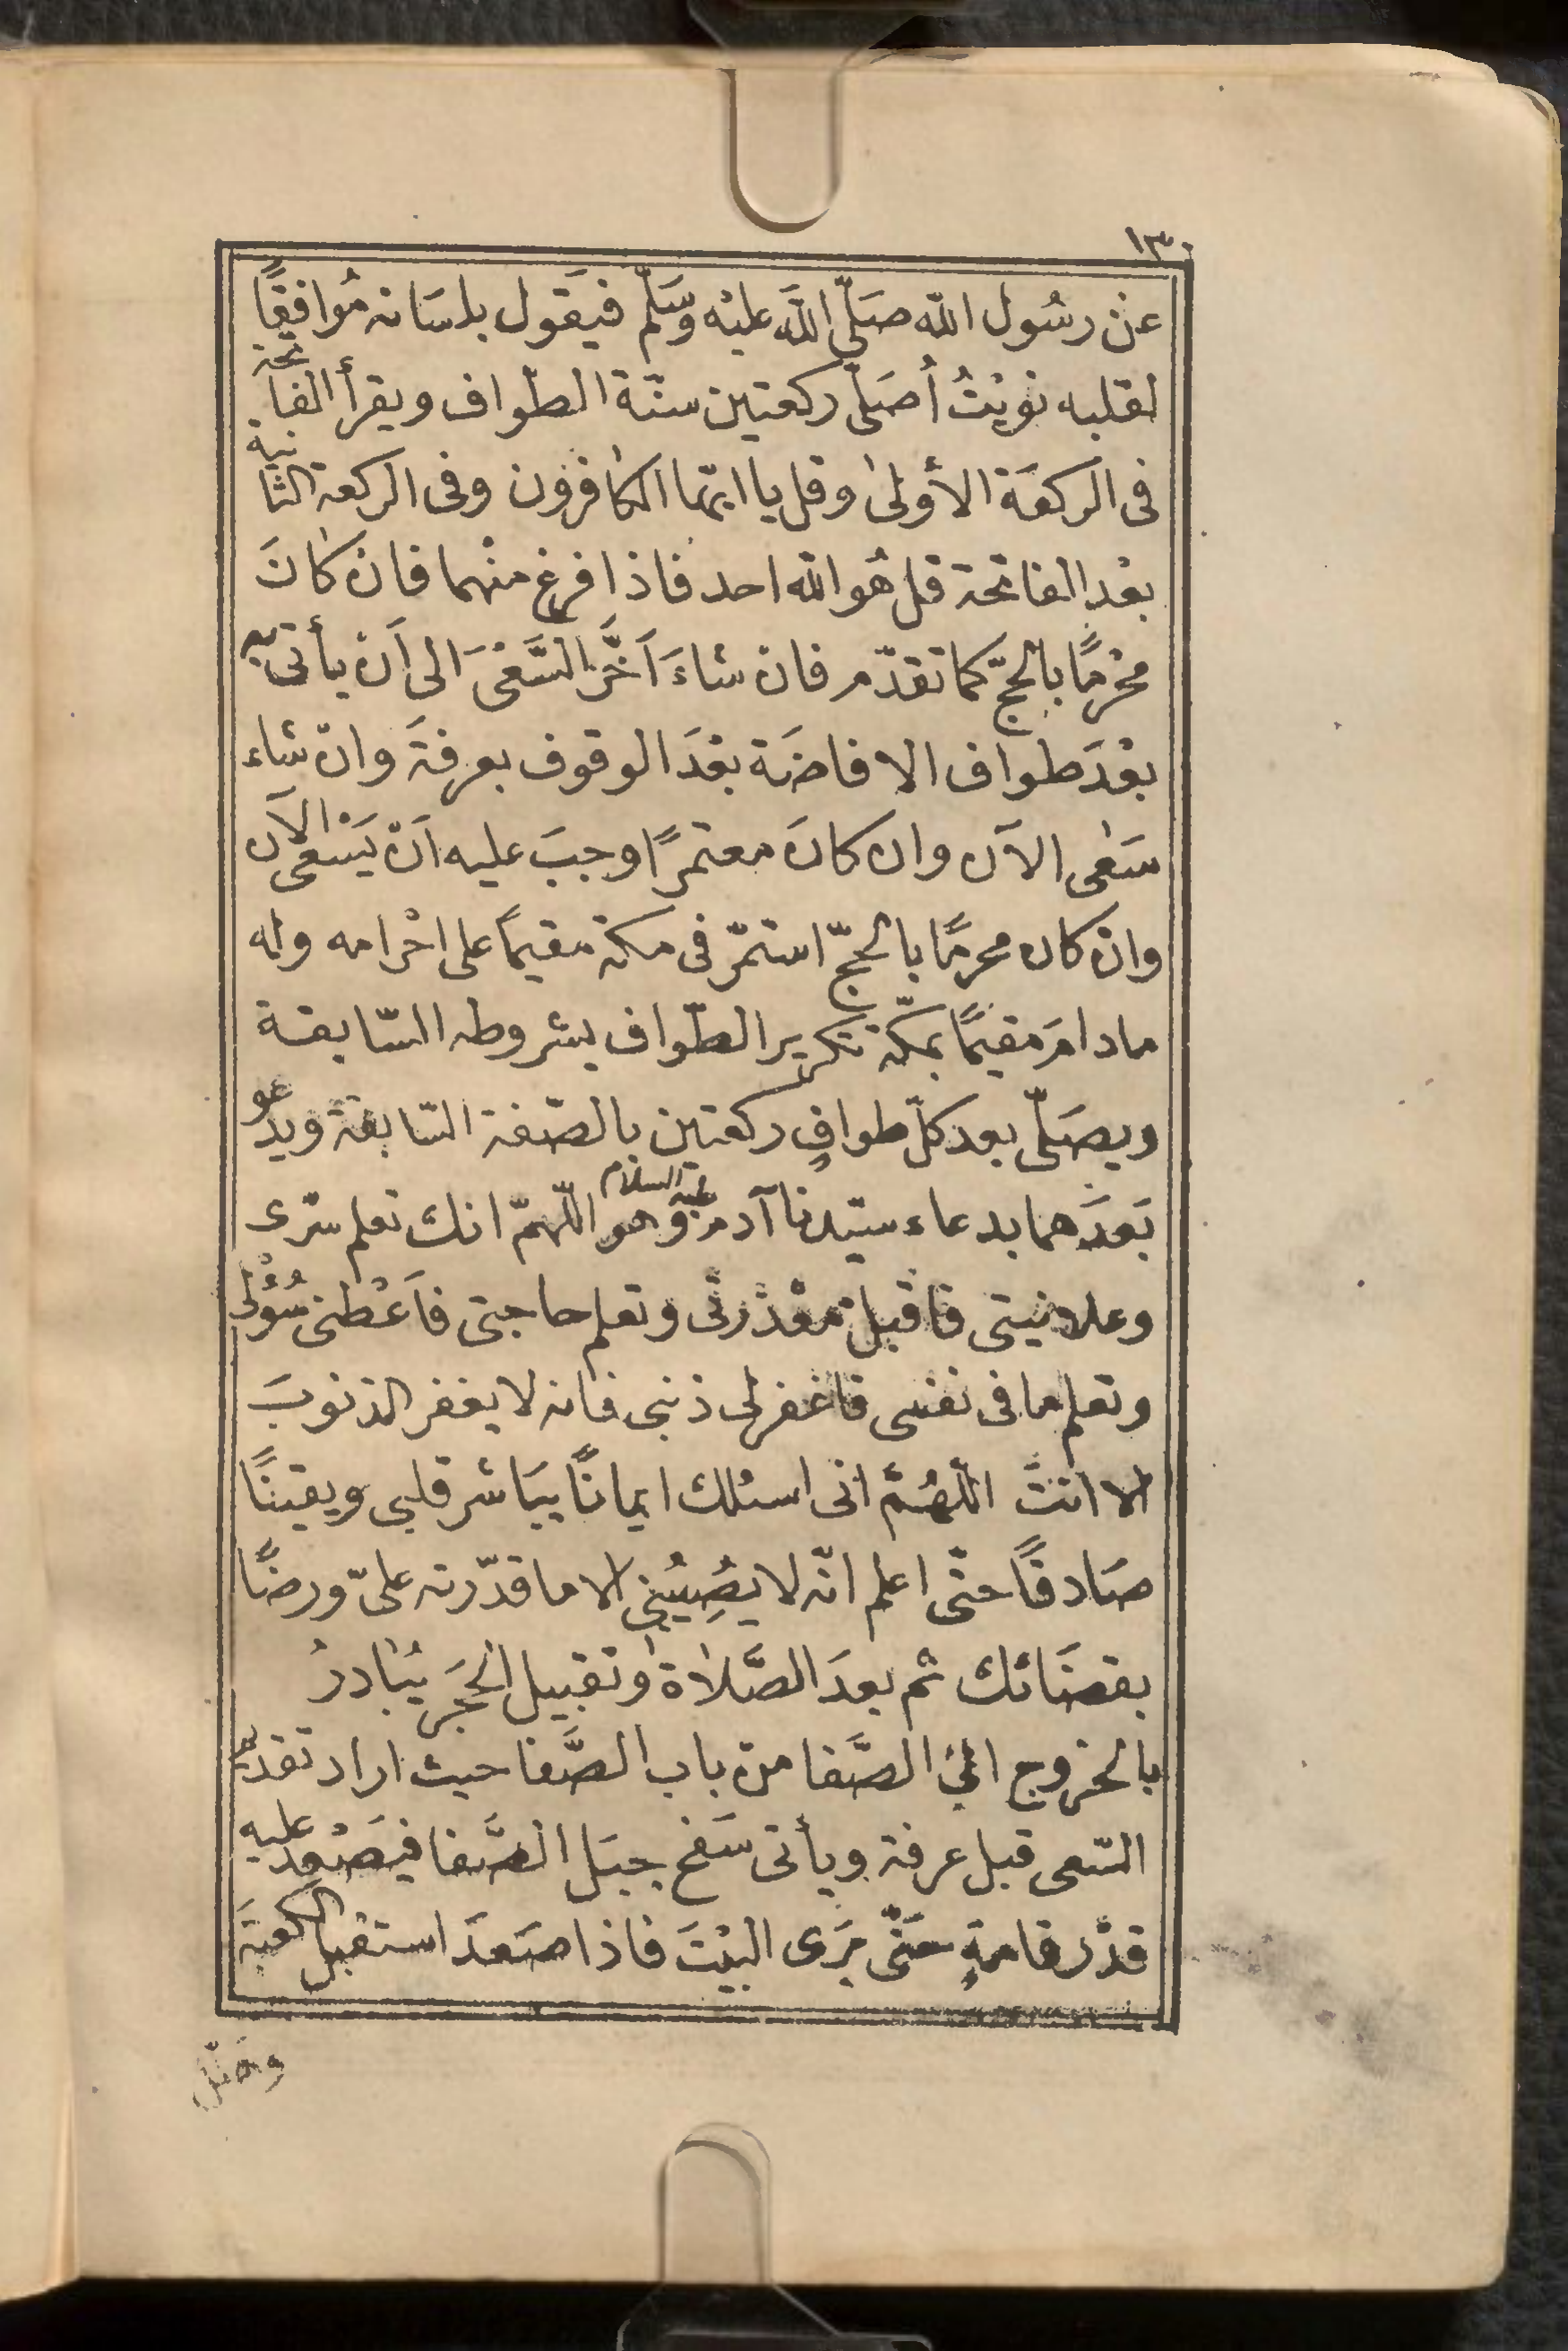 ١٣٠
عن رسُول الله صَلّى اللَّه عليْه وسَلّم فيَقول بلسَانه مُوافقًا
لقلبه نوَيْتُ أُصَلّى ركعتين سنّة الطّواف ويقرأ الفاتحة
فى الركعَة الأولىٰ وقل يا ايّها الكافرون وفى الركعة الثانية
بعْد الفاتحة قل هُو الله احد فاذا فرغ منْهما فان كانَ
محْرمًا بالحجّ كما تقدّم فان شاءَ اَخَّر السَّعْىَ الى اَنْ يأتى به
بعْدَ طواف الافاضَة بعْدَ الوقوف بعرفةَ وان شاء
سَعٰى الآن وان كانَ معتمرًا وجبَ عليه اَنْ يَسْعى الآن
وان كان محرمًا بالحجّ استمرّ فى مكة مقيمًا على احْرامه وله
مادامَ مقيمًا بمكّة تكرير الطّواف بشروطه السّابقة
ويصَلّى بعد كلّ طوافٍ ركعتين بالصّفة السّابقة ويدعو
بَعدَهما بدعاء سيّدنا آدم عليه السلام وهو اللّهمّ انك تعلم سرّى
وعلانيتى فاقْبلْ معْذرتى وتعلم حاجتى فاَعْطنى سُؤْلى
وتعلم ما فى نفسى فاغفر لى ذنبى فانه لا يغفر الذنوبَ
الا انتَ اللّهُمَّ انى اسئلك ايمانًا يبَاشر قلبى ويقينًا
صَادقًا حتّى اعلم انّه لا يصُيبُنى الا ما قدّرته علىّ ورضًا
بقضَائك ثم بعدَ الصَّلاة وتقبيل الحَجَر يُبادرُ
بالخروج الىٰ الصَّفا من باب الصَّفا حيث اراد تقديم
السّعى قبل عرفة ويأتى سَفح جبَل الصَّفا فيَصْعد عليه
قدْر قامةٍ حَتّى يَرَى البيْتَ فاذا صَعدَ استقبل الكعبَة
وهَلّل